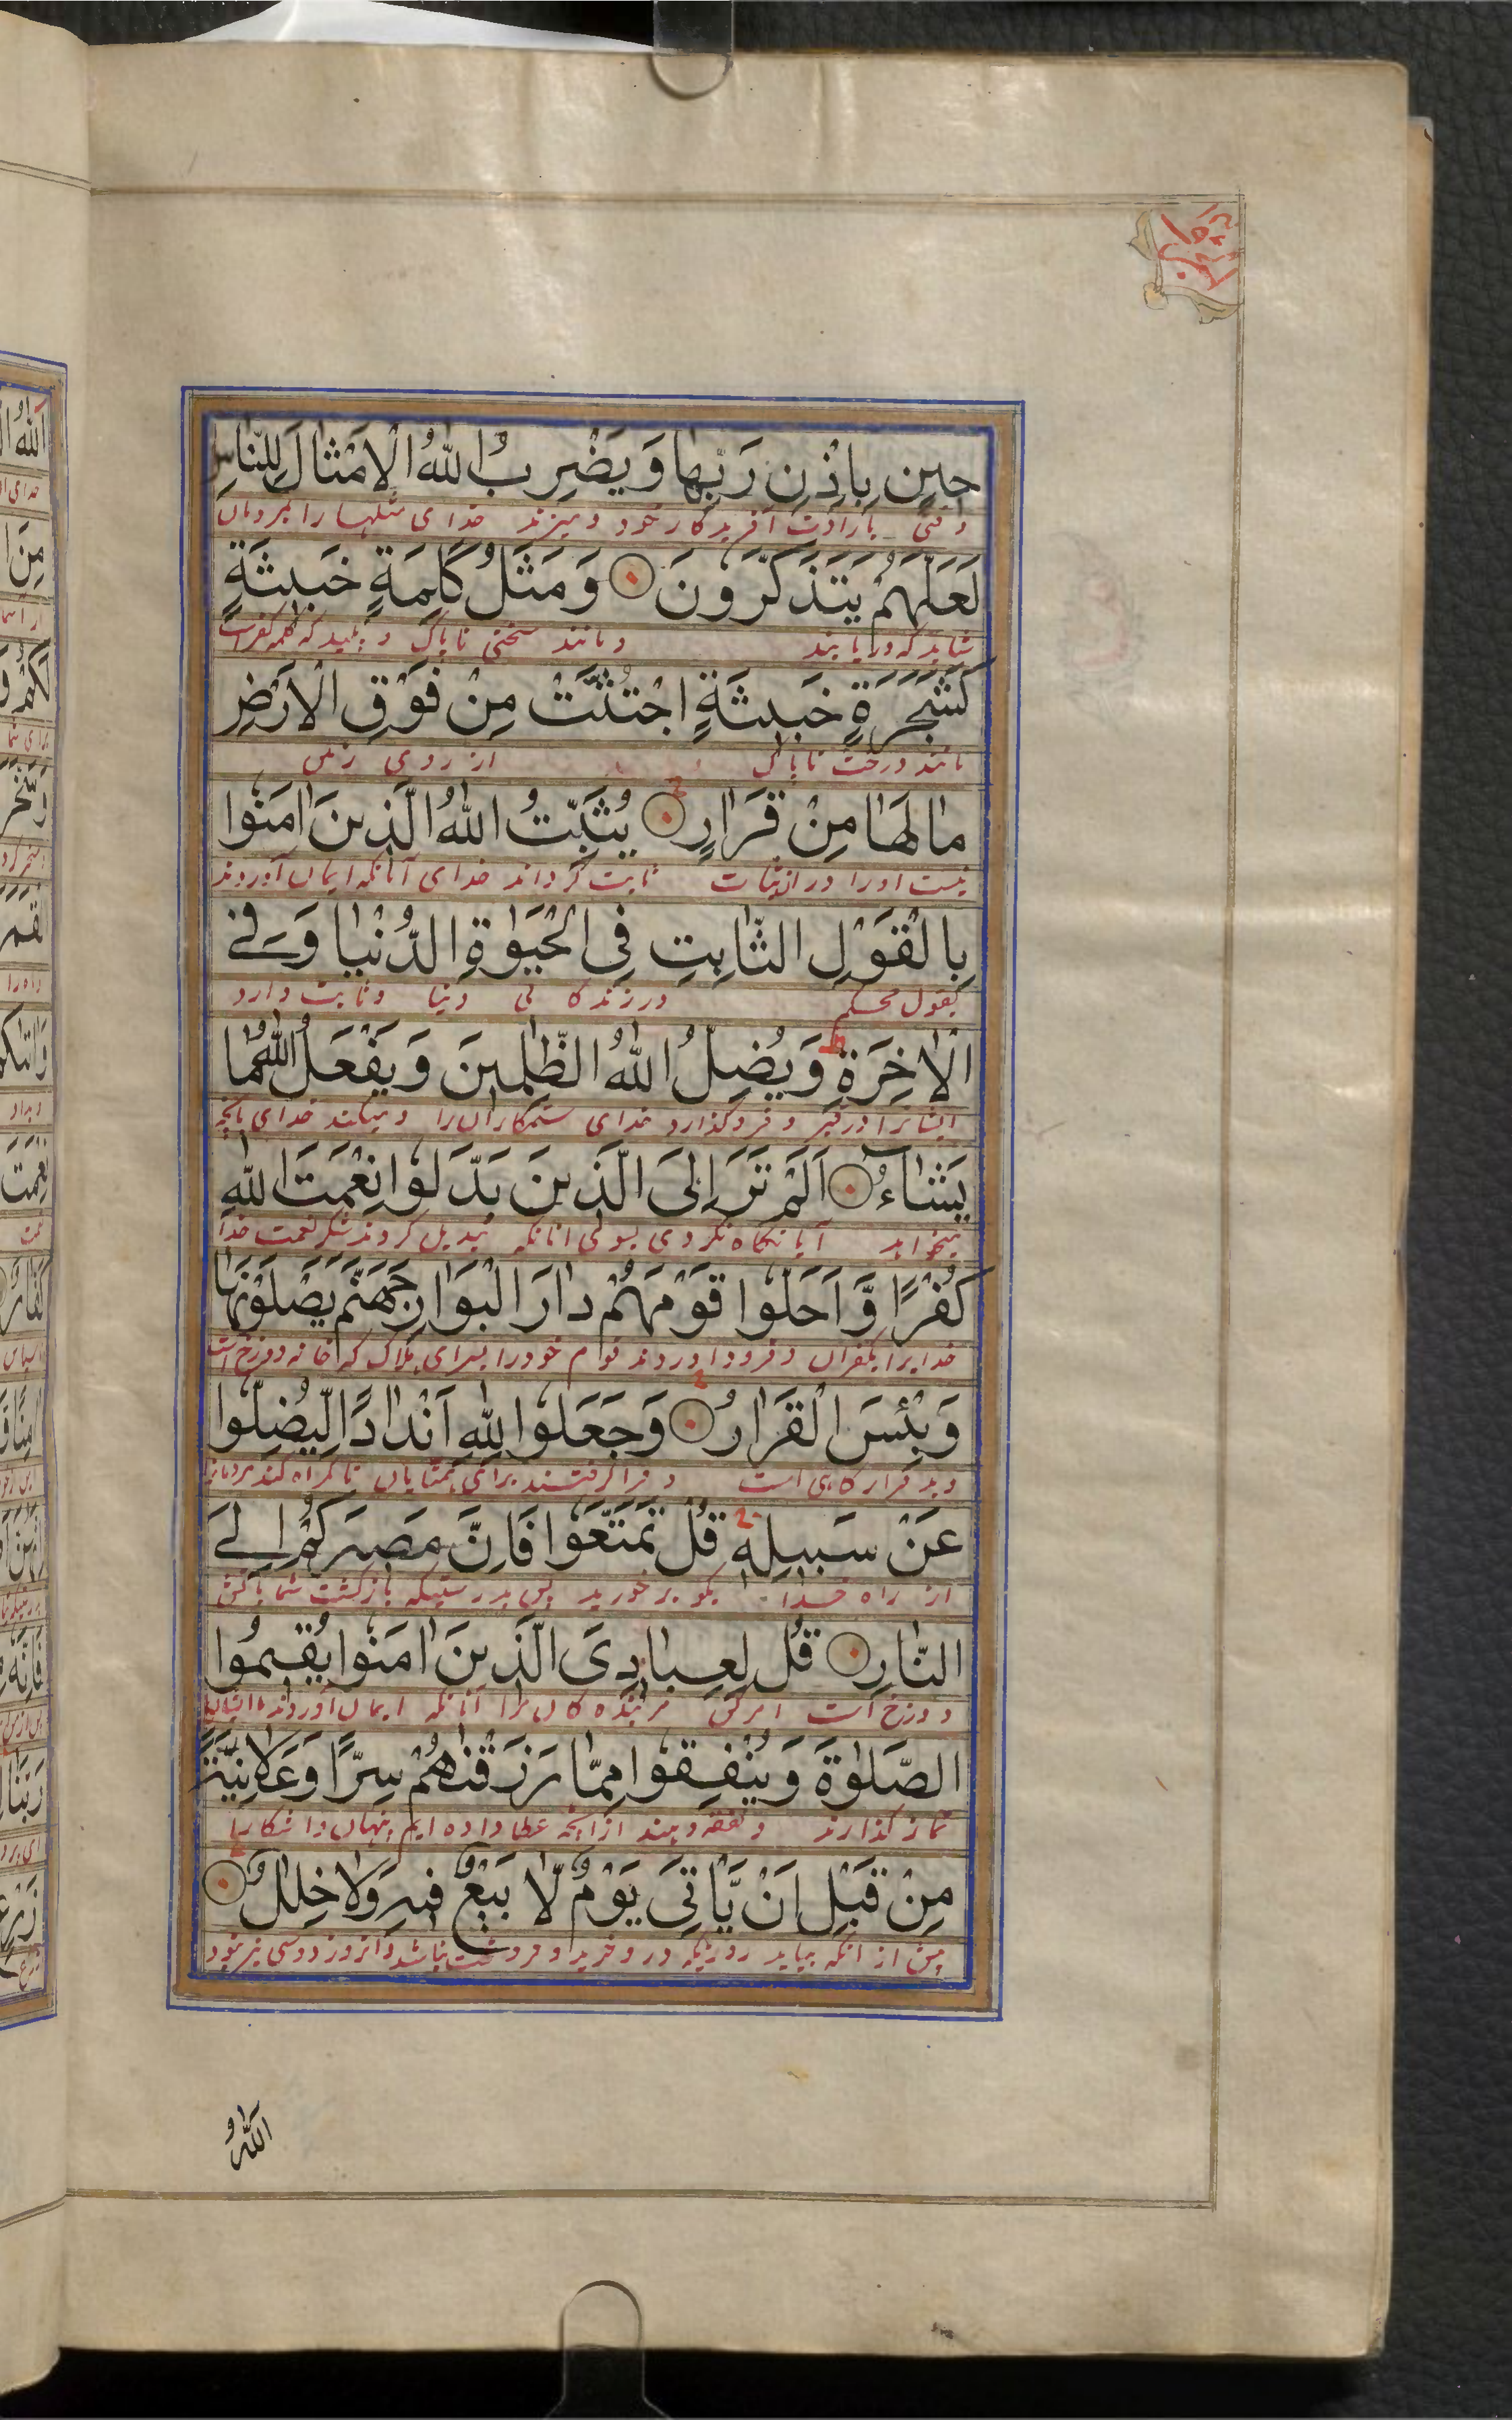 حِينٍ بِاِذْنِ رَبِّهَا وَيَضْرِبُ اللّٰهُ الْاَمْثَالَ لِلنَّاسِ
وقتی بارادت آفریدگار خود و میزند خدای مثلها را بمردمان
لَعَلَّهُمْ يَتَذَكَّرُونَ وَمَثَلُ كَلِمَةٍ خَبِيثَةٍ
شاید که دریابند و مانند سخنی ناپاک و پلید که کلمه کفرست
كَشَجَرَةٍ خَبِيثَةٍ اجْتُثَّتْ مِنْ فَوْقِ الْاَرْضِ
مانند درخت ناپاک از روی زمین
مَا لَهَا مِنْ قَرَارٍ يُثَبِّتُ اللّٰهُ الَّذِينَ اٰمَنُوا
نیست او را ثبات ثابت گرداند خدای آنانکه ایمان آوردند
بِالْقَوْلِ الثَّابِتِ فِى الْحَيٰوةِ الدُّنْيَا وَفِى
بقول محکم در زندگانی دنیا و ثابت دارد
الْاٰخِرَةِ ط وَيُضِلُّ اللّٰهُ الظّٰلِمِينَ وَيَفْعَلُ اللّٰهُ مَا
ایشانرا در قبر و فروگذارد خدای ستمکاران را و میکند خدای آنچه
يَشَاۤءُ اَلَمْ تَرَ اِلَى الَّذِينَ بَدَّلُوا نِعْمَتَ اللّٰهِ
میخواهد آیا نگاه نکردی بسوی آنانکه تبدیل کردند شکر نعمت خدا
كُفْرًا وَّاَحَلُّوا قَوْمَهُمْ دَارَ الْبَوَارِ جَهَنَّمَ يَصْلَوْنَهَا
خدایرا بکفران و فرود آوردند قوم خود را بسرای هلاک که خانه دوزخ است
وَبِئْسَ الْقَرَارُ وَجَعَلُوا لِلّٰهِ اَنْدَادًا لِّيُضِلُّوا
و بد قرارگاهی است و فرا گرفتند برای همتایان تا گمراه کنند مردمانرا
عَنْ سَبِيلِهِ قُلْ تَمَتَّعُوا فَاِنَّ مَصِيرَكُمْ اِلَى
از راه خدا بگو برخورید پس بدرستیکه بازگشت شما باتش
النَّارِ قُلْ لِعِبَادِىَ الَّذِينَ اٰمَنُوا يُقِيمُوا
دوزخ است امر کن مر بنده کان مرا آنانکه ایمان آوردند
الصَّلٰوةَ وَيُنْفِقُوا مِمَّا رَزَقْنٰهُمْ سِرًّا وَعَلَانِيَةً
نماز گذارند و نفقه دهند از آنچه عطا داده ایم پنهان و آشکارا
مِنْ قَبْلِ اَنْ يَّاْتِىَ يَوْمٌ لَّا بَيْعٌ فِيهِ وَلَا خِلٰلٌ
پیش از آنکه بیاید روزیکه درو خرید و فروخت نباشد و آنروز دوستی نیز نبود
اَللّٰهُ